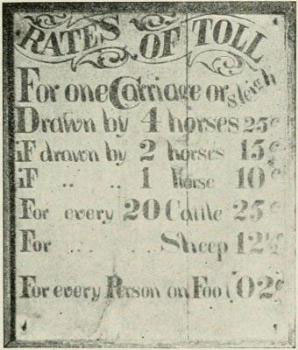 RATES OF TOLL
For one Carriage or sleigh
Drawn by 4 horses 25¢
iF drawn by 2 horses 15¢
iF .. .. 1 Horse 10¢
For every 20 Cattle 25¢
For .. .. .. Sheep 12½
For every Person on Foot 02¢